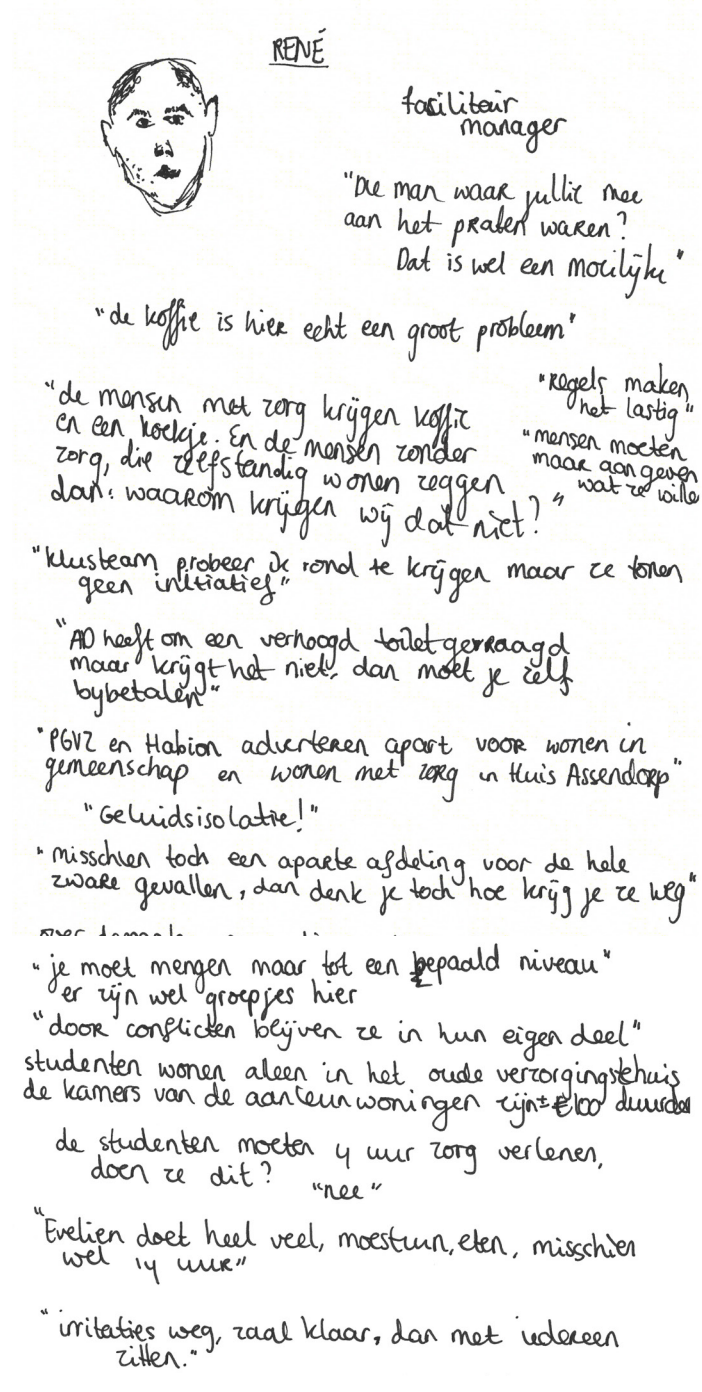 RENÉ
facilitair
manager
"Die man waar jullie mee
aan het praten waren?
Dat is wel een moeilijke"
"de koffie is hier echt een groot probleem"
"de mensen met zorg krijgen koffie
en een koekje. En de mensen zonder
zorg, die zelfstandig wonen zeggen
dan: waarom krijgen wij dat niet?"
"Regels maken
het lastig"
"mensen moeten
maar aangeven
wat ze wille
"klusteam probeer ik rond te krijgen maar ze tonen
geen initiatief"
"AD heeft om een verhoogd toilet gevraagd
maar krijgt het niet, dan moet je zelf
bybetalen"
"PGVZ en Habion adverteren apart voor wonen in
gemeenschap en wonen met zorg in Huis Assendorp"
"Geluidsisolatie!"
"misschien toch een aparte afdeling voor de hele
zware gevallen, dan denk je toch hoe krijg je ze weg"
"je moet mengen maar tot een bepaald niveau"
er zijn wel groepjes hier
"door conflicten blijven ze in hun eigen deel"
studenten wonen alleen in het oude verzorgingstehuis
de kamers van de aanleunwoningen zijn ± €100 duurder
de studenten moeten 4 uur zorg verlenen,
doen ze dit?
"nee"
"Evelien doet heel veel, moestuin, eten, misschien
wel 14 uur"
"irritaties weg, zaal klaar, dan met iedereen
zitten."